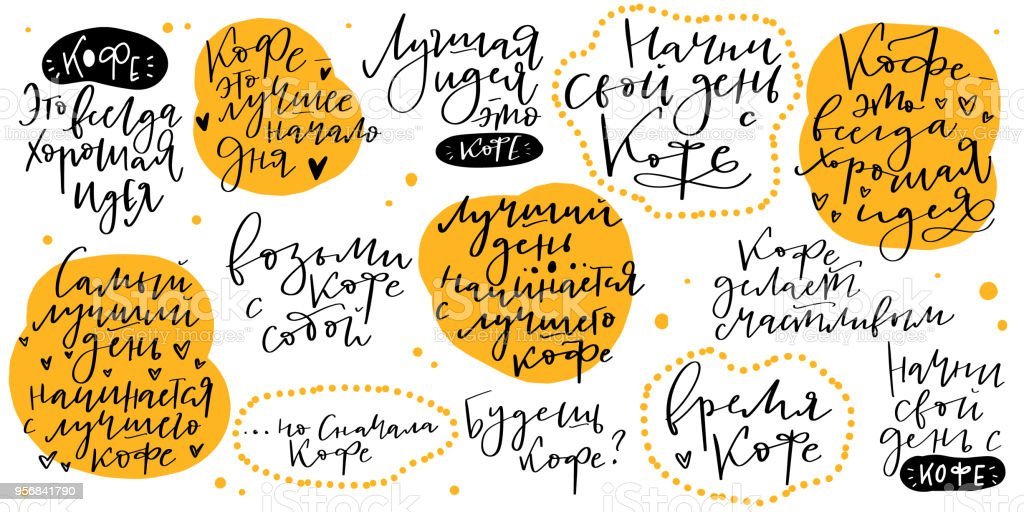 Кофе
Это всегда
хорошая
идея
Кофе –
это
лучшее
начало
дня
Лучшая
идея
это
кофе
Начни
свой день
с
Кофе
Кофе –
это
всегда
хорошая
идея
Самый
лучший
день
начинается
с лучшего
кофе
возьми
с кофе
собой
Лучший
день
начинается
с лучшего
кофе
Кофе
делает
счастливым
...но сначала
кофе
Будешь
кофе?
время
кофе
Начни
свой
день с
кофе
iStock
by Getty Images
956841790
Credit: Rosifan19